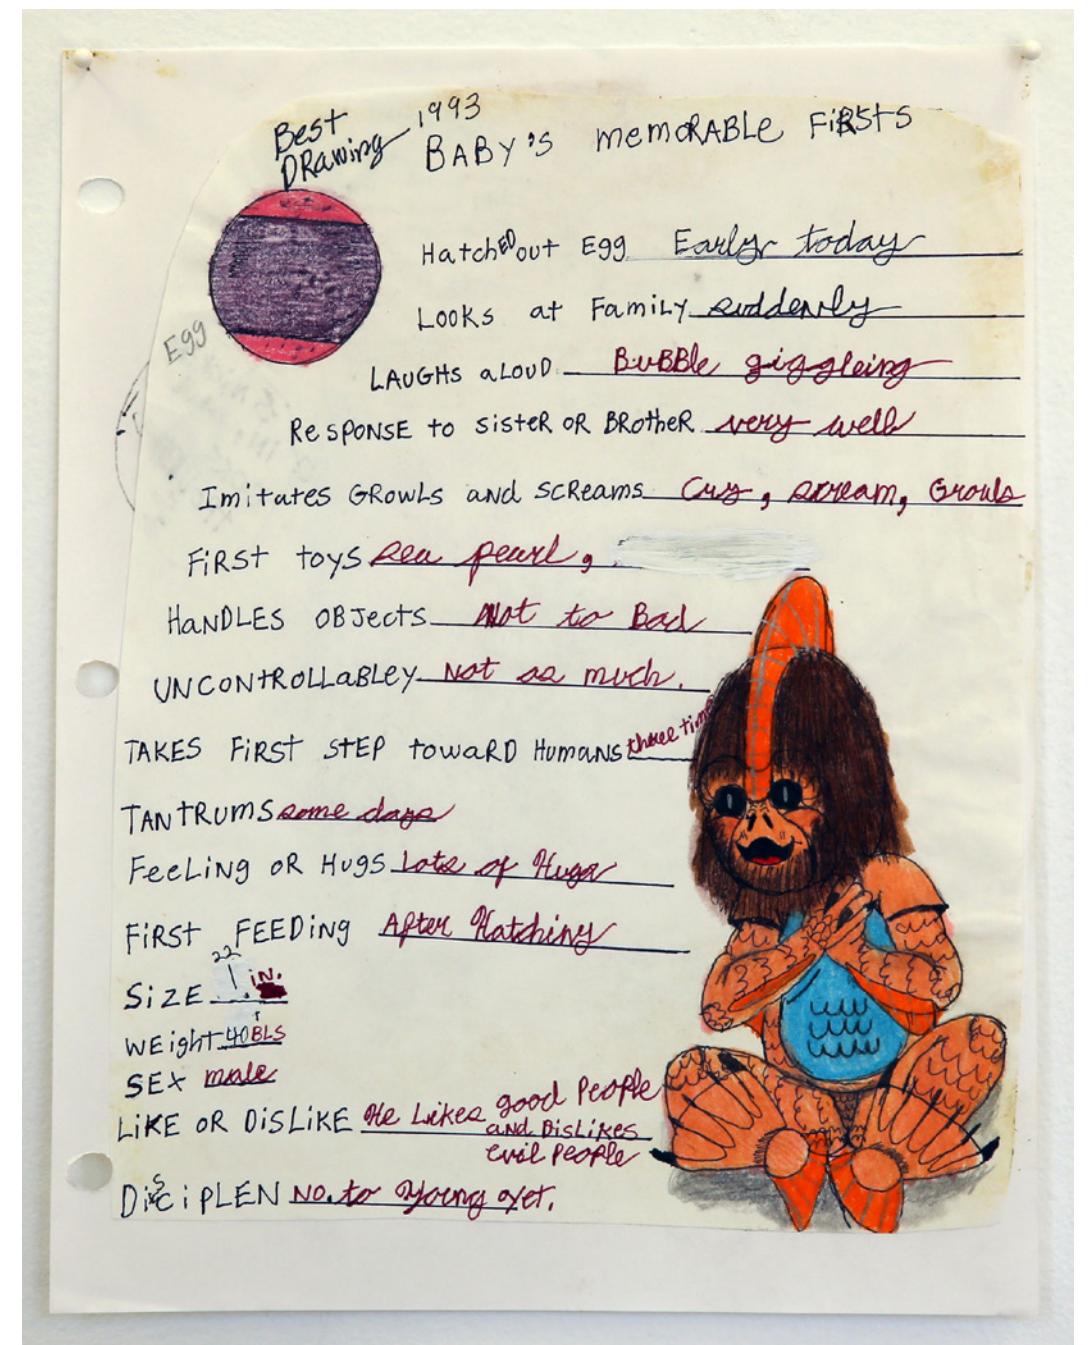 Best
DRawing
1993
BABY'S memoRABLE FiRSts
HatchEDout Egg Early today
Egg
LOOKS at FamiLY suddenly
LAUGHS aLOUD BuBBle giggleing
ReSPONSE to sisteR OR BRotheR very well
Imitates GROWLS and SCReams Cry, scream, Growls
FiRSt toYS sea pearl,
HaNDLES OBJects Not to Bad
UNCONtROLLaBLEY Not so much.
TAKES FiRST STEP towaRD Humans three time
TANtRUMS some days
FeeLiNg OR HUgS lots of Hugs
FiRST FEEDiNg After Hatching
22
SiZE 1 iN.
WEight 40 BLS
SEX male
LiKE OR DiSLiKE He Likes good People
and DisLiKes
evil People
DiSCiPLEN NO. to Young Yet.